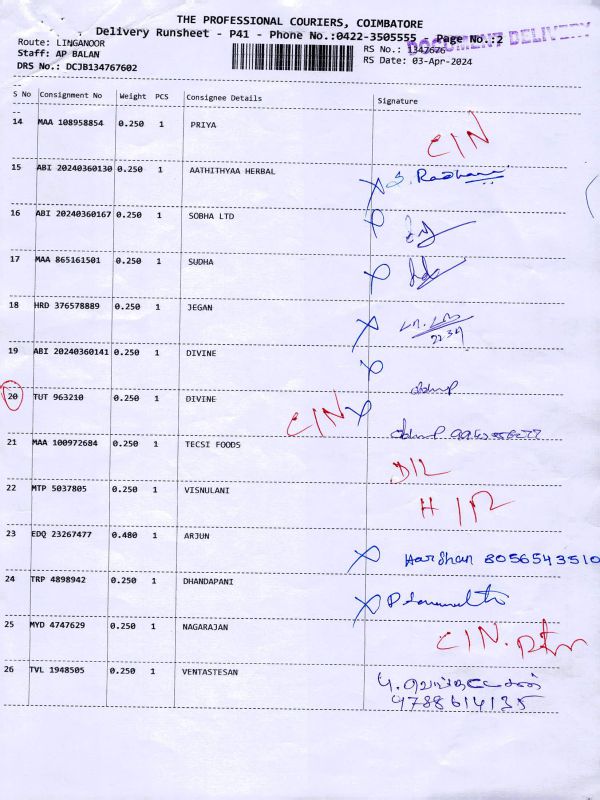 THE PROFESSIONAL COURIERS, COIMBATORE
Delivery Runsheet - P41 - Phone No.:0422-3505555 Page No.:2
DOCUMENT DELIVERY
Route: LINGANOOR RS No.: 1347676
Staff: AP BALAN RS Date: 03-Apr-2024
DRS No.: DCJB134767602
S No Consignment No Weight PCS Consignee Details Signature
14 MAA 108958854 0.250 1 PRIYA CIN
15 ABI 20240360130 0.250 1 AATHITHYAA HERBAL
16 ABI 20240360167 0.250 1 SOBHA LTD
17 MAA 865161501 0.250 1 SUDHA
18 HRD 376578889 0.250 1 JEGAN
19 ABI 20240360141 0.250 1 DIVINE
20 TUT 963210 0.250 1 DIVINE CIN
21 MAA 100972684 0.250 1 TECSI FOODS D/L
22 MTP 5037805 0.250 1 VISNULANI
23 EDQ 23267477 0.480 1 ARJUN Harshan 8056543510
24 TRP 4898942 0.250 1 DHANDAPANI
25 MYD 4747629 0.250 1 NAGARAJAN CIN.
26 TVL 1948505 0.250 1 VENTASTESAN
4788614135